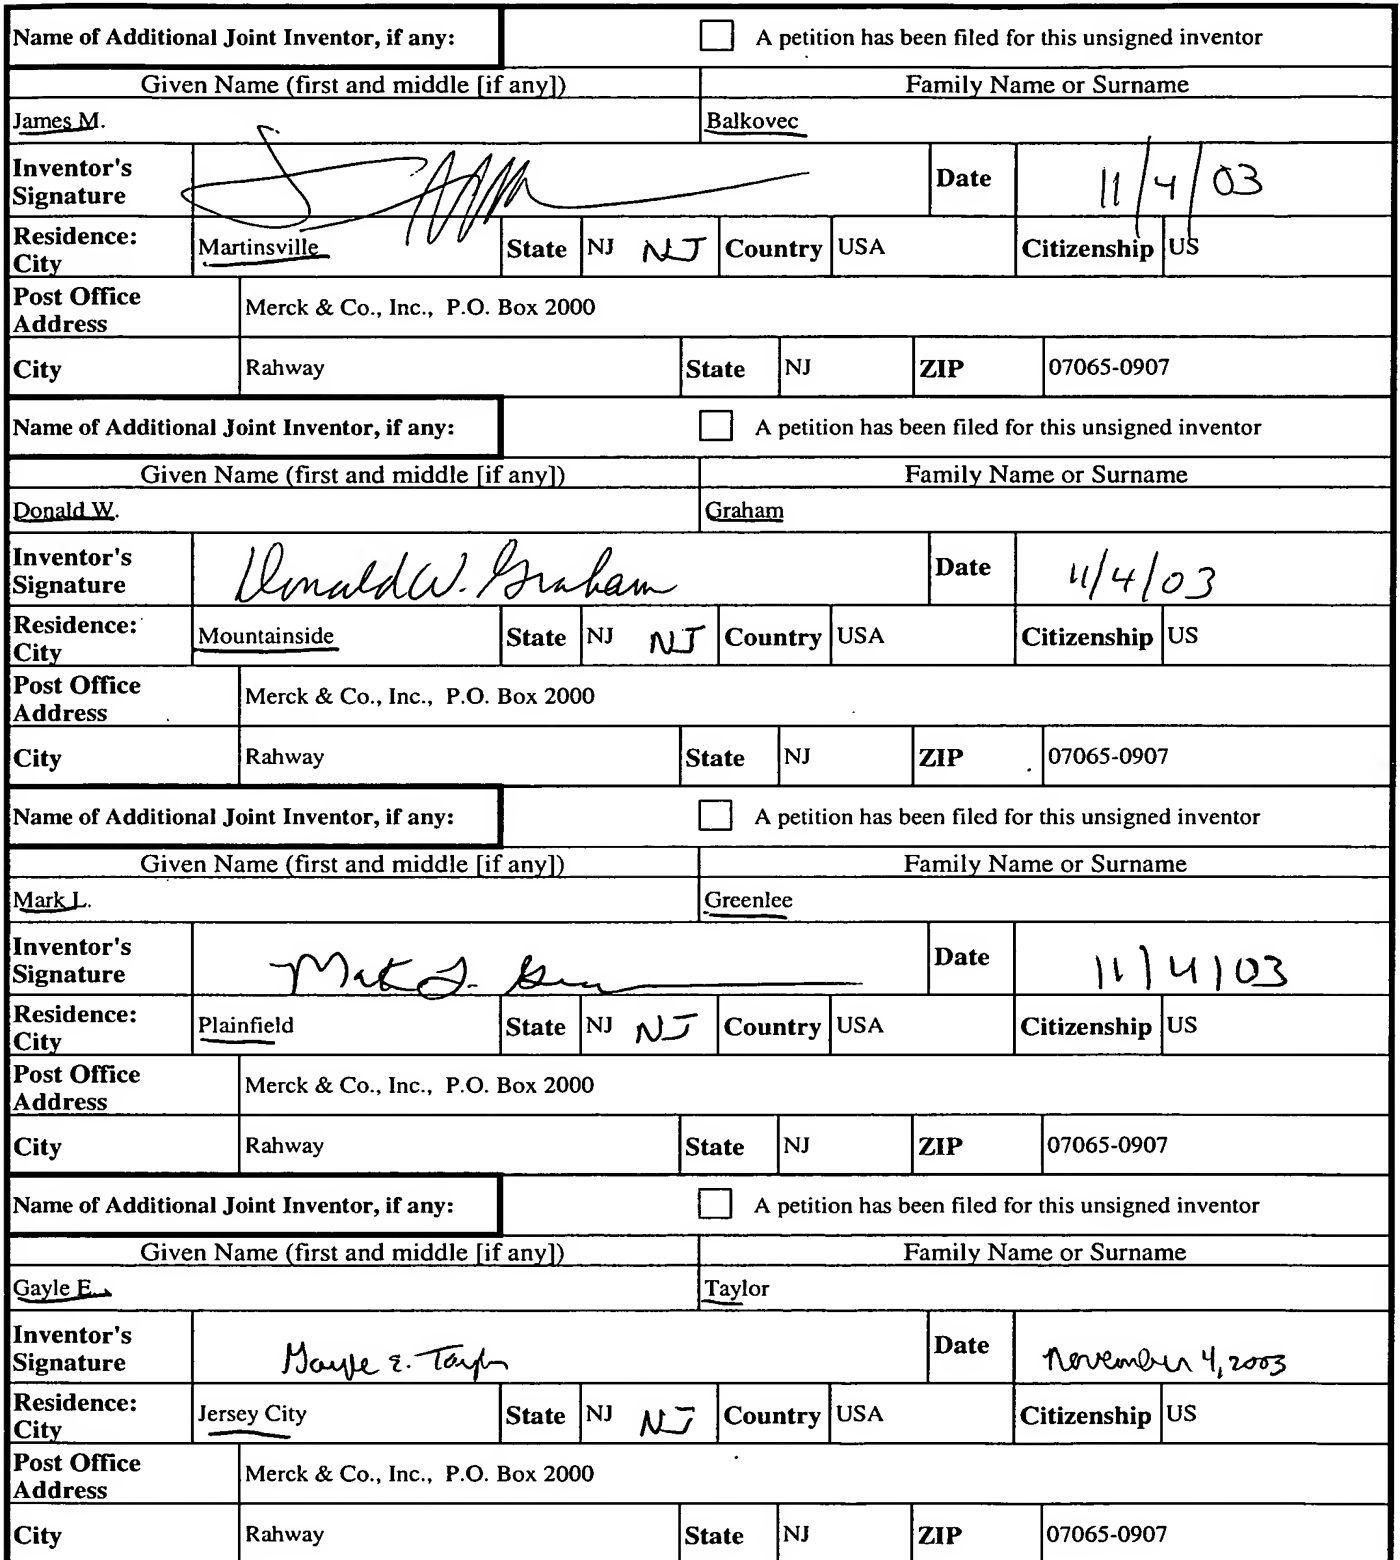 Name of Additional Joint Inventor, if any: A petition has been filed for this unsigned inventor
Given Name (first and middle [if any]) Family Name or Surname
James M. Balkovec
Inventor's Signature Date 11/4/03
Residence: City Martinsville State NJ NJ Country USA Citizenship US
Post Office Address Merck & Co., Inc., P.O. Box 2000
City Rahway State NJ ZIP 07065-0907
Name of Additional Joint Inventor, if any: A petition has been filed for this unsigned inventor
Given Name (first and middle [if any]) Family Name or Surname
Donald W. Graham
Inventor's Signature Donald W. Graham Date 11/4/03
Residence: City Mountainside State NJ NJ Country USA Citizenship US
Post Office Address Merck & Co., Inc., P.O. Box 2000
City Rahway State NJ ZIP 07065-0907
Name of Additional Joint Inventor, if any: A petition has been filed for this unsigned inventor
Given Name (first and middle [if any]) Family Name or Surname
Mark L. Greenlee
Inventor's Signature Mark L. Date 11/4/03
Residence: City Plainfield State NJ NJ Country USA Citizenship US
Post Office Address Merck & Co., Inc., P.O. Box 2000
City Rahway State NJ ZIP 07065-0907
Name of Additional Joint Inventor, if any: A petition has been filed for this unsigned inventor
Given Name (first and middle [if any]) Family Name or Surname
Gayle E. Taylor
Inventor's Signature Gayle E. Taylor Date November 4, 2003
Residence: City Jersey City State NJ NJ Country USA Citizenship US
Post Office Address Merck & Co., Inc., P.O. Box 2000
City Rahway State NJ ZIP 07065-0907